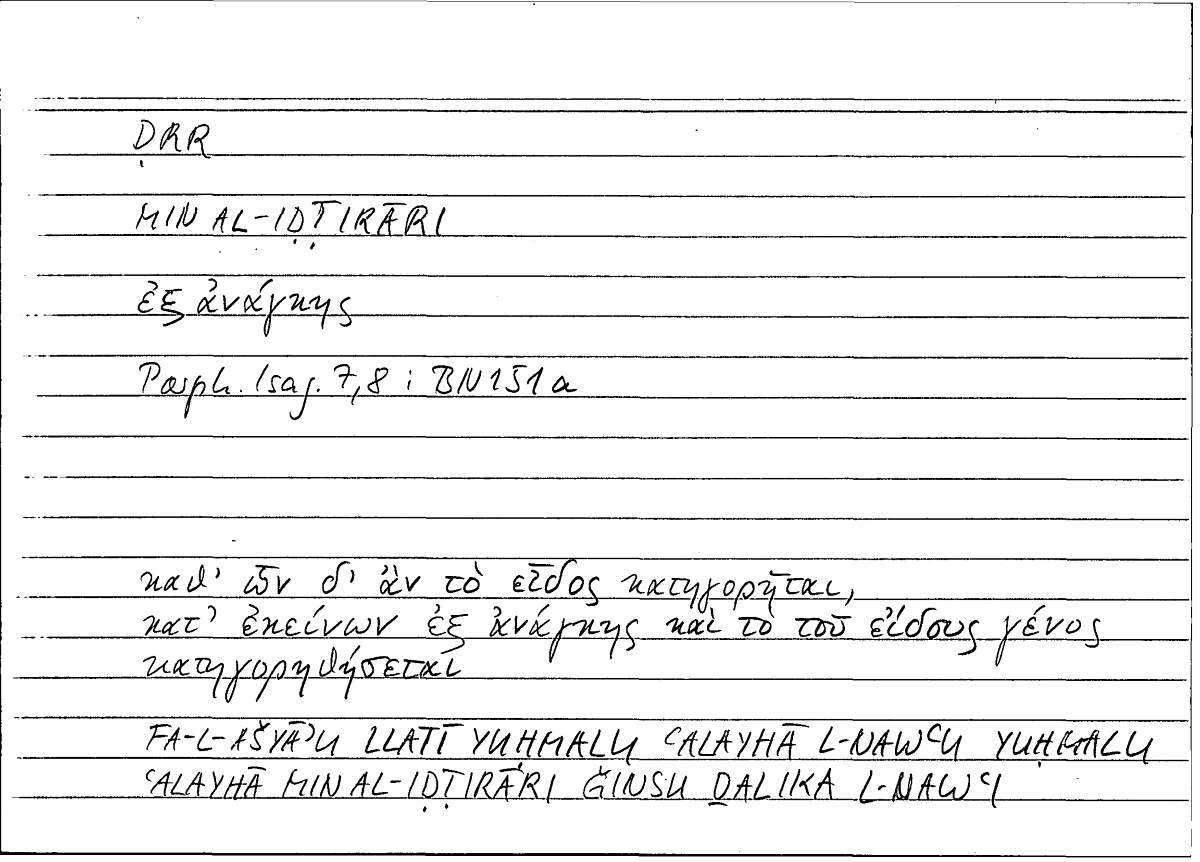 ḌRR
MIN AL-IḌṬIRĀRI
ἐξ ἀνάγκης
Porph. Isag. 7,8 ; BN 151a
καθ' ὧν δ' ἂν τὸ εἶδος κατηγορῆται,
κατ' ἐκείνων ἐξ ἀνάγκης καὶ τὸ τοῦ εἴδους γένος
κατηγορηθήσεται
FA-L-AŠYĀʾU LLATĪ YUḤMALU ʿALAYHĀ L-NAWʿU YUḤMALU
ʿALAYHĀ MIN AL-IḌṬIRĀRI ǦINSU ḎALIKA L-NAWʿI